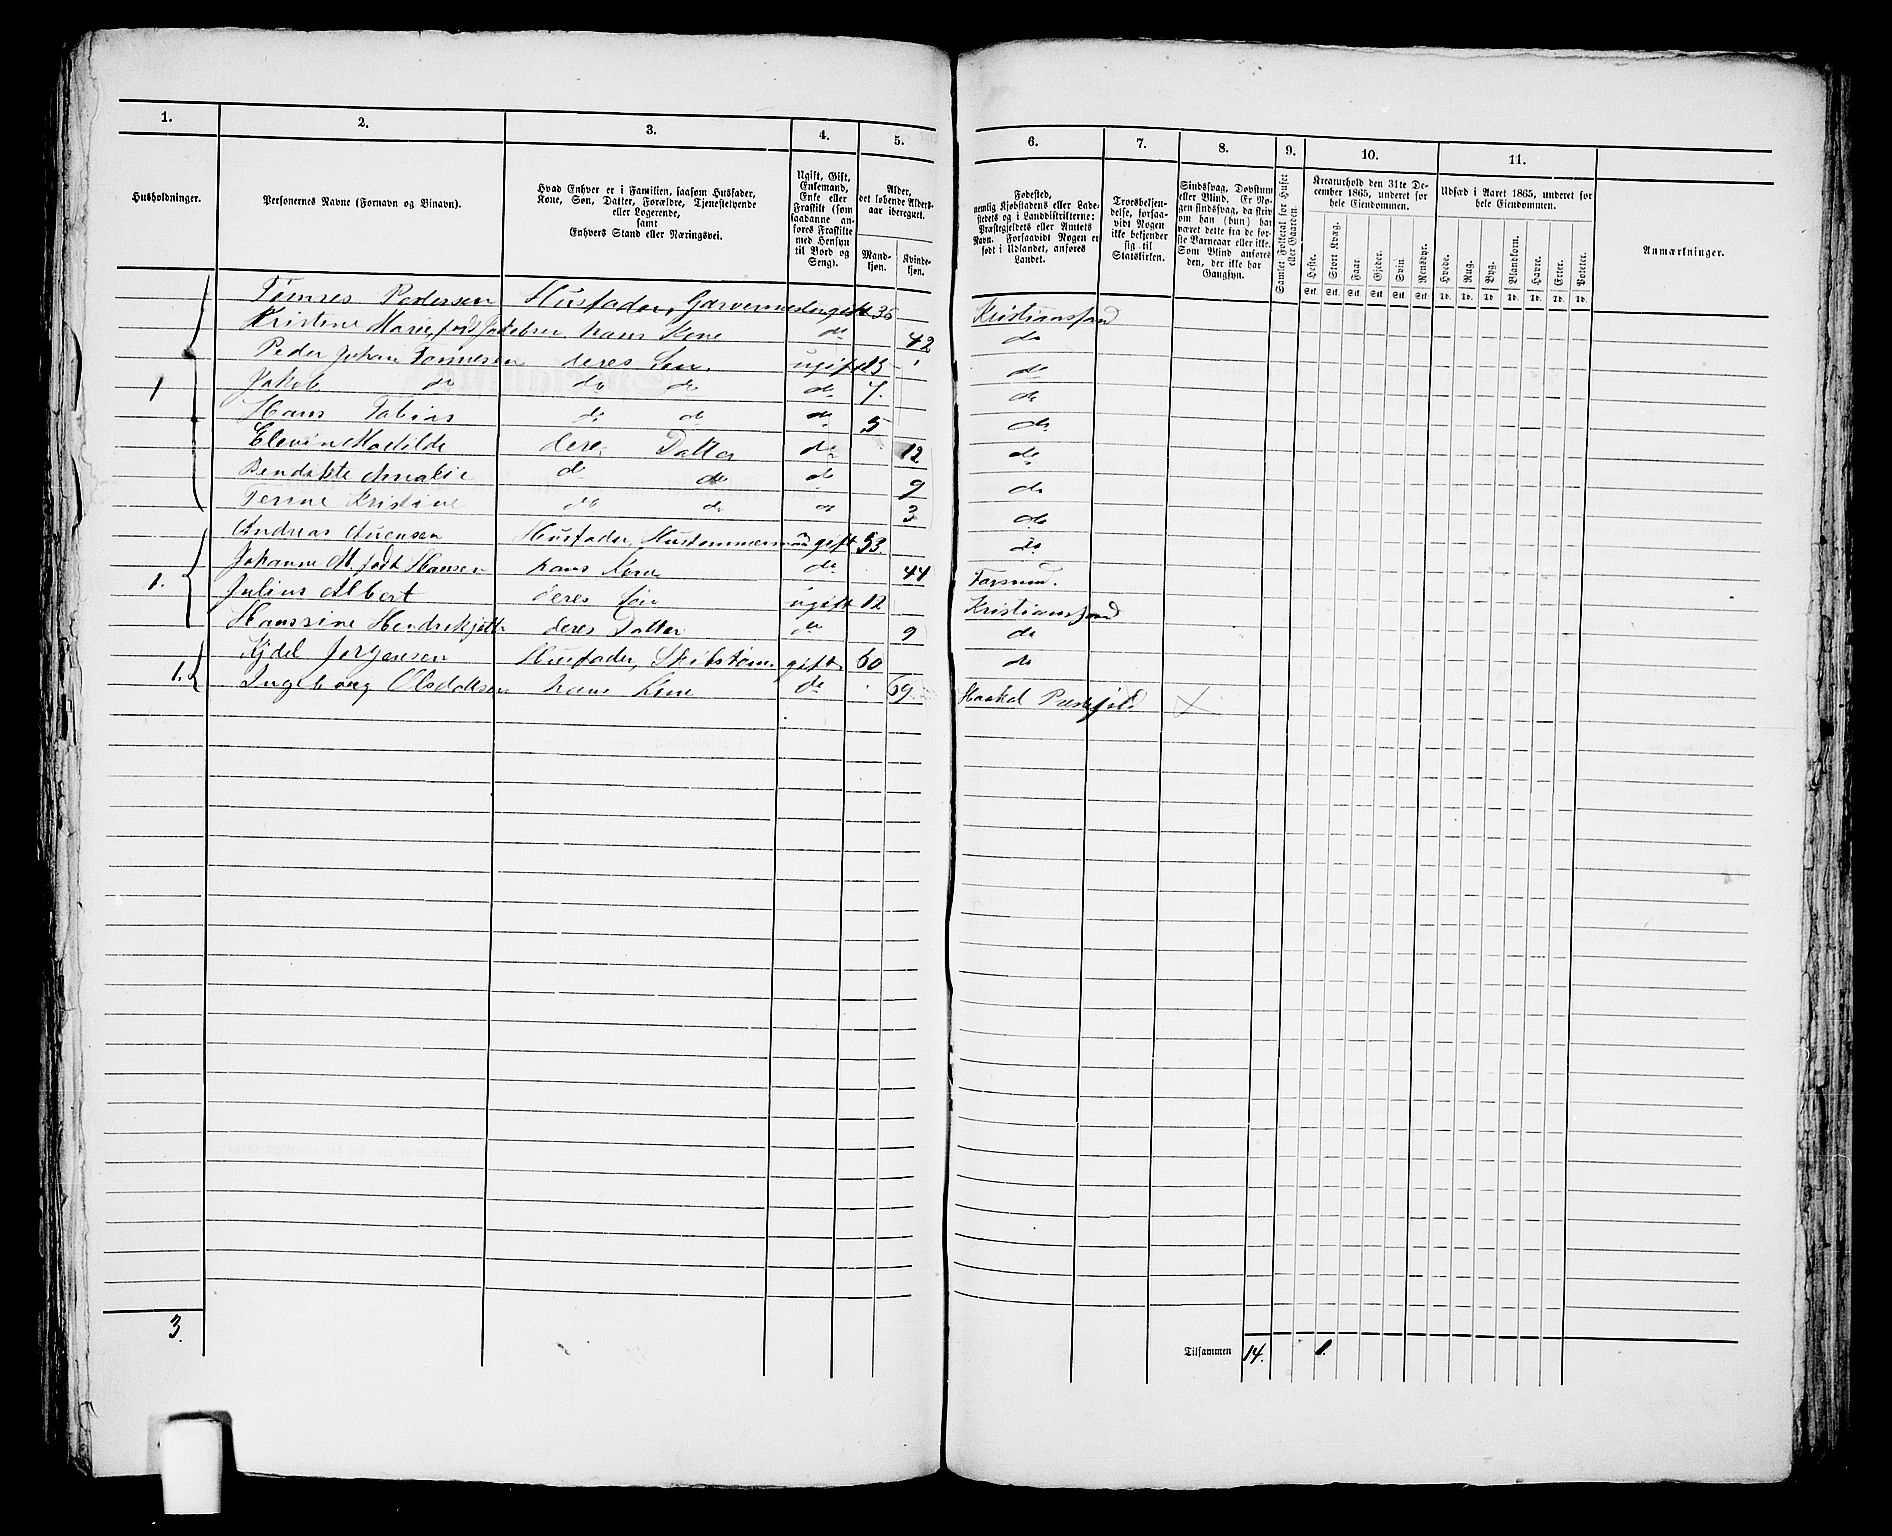 1. 2. 3. 4. 5. 6. 7. 8. 9. 10. 11.
Husholdninger.
Personernes Navne (Fornavn og Binavn).
Hvad Enhver er i Familien, saasom Husfader,
Kone, Søn, Datter, Forældre, Tjenestetyende
eller Logerende,
samt
Enhvers Stand eller Næringsvei.
Ugift, Gift,
Enkemand,
Enke eller
Fraskilt (som
saadanne an-
føres Fraskilte
med Hensyn
til Bord og
Seng).
Alder,
det løbende Alders-
aar iberegnet.
Mand-
kjøn.
Kvinde-
kjøn.
Fødested,
nemlig Kjøbstadens eller Lade-
stedets og i Landdistrikterne:
Præstegjeldets eller Amtets
Navn. Forsaavidt Nogen er
født i Udlandet, anføres
Landet.
Troesbekjen-
delse, forsaa-
vidt Nogen
ikke bekjender
sig til
Statskirken.
Sindssvag, Døvstum
eller Blind. Er No-
gen sindssvag, da skriv
om han (hun) har
været dette fra de før-
ste Barneaar eller ikke.
Som Blind anføres
den, der ikke har
Gangsyn.
Samlet Folketal for Huset
eller Gaarden.
Kreaturhold den 31te De-
cember 1865, underet for
hele Eiendommen.
Heste. Stort Kvæg. Faar. Gjeder. Svin. Rensdyr.
Stk. Stk. Stk. Stk. Stk. Stk.
Udsæd i Aaret 1865, underet for
hele Eiendommen.
Hvede. Rug. Byg. Blandkorn. Havre. Erter. Poteter.
Td. Td. Td. Td. Td. Td. Td.
Anmærkninger.
Tønnes Pedersen Husfader, Garvermester gift 35 Kristianssand
Kristine Marie, født Jakobsen hans Kone do 42 do
Peder Johan Tønnesen deres Søn ugift 13 do
1 Jakob do do do do 7. do
Hans Tobias do do do 5 do
Elevine Matilde deres Datter do 12 do
Bendikte Amalie do do do 9 do
Kristine do do do 3 do
Andreas Husfader, Hustømmermand gift 53 do
1. Johanne M. født Hansen hans Kone do 44 Farsund.
Julius Albert deres Søn ugift 12 Kristianssand
Hanssine deres Datter do 9 do
Kjdel Jørgensen Husfader, Skibstøm. gift 60 do
1. Ingeborg Olsdatter hans Kone do 69. Præstegjeld
3.
Tilsammen 14. 1.